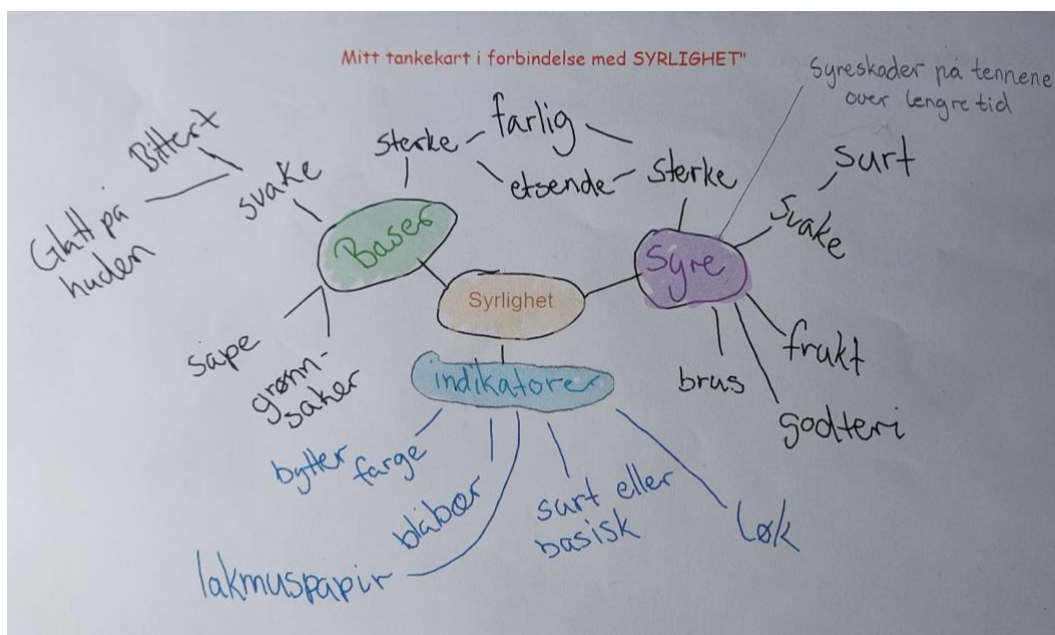 Mitt tankekart i forbindelse med SYRLIGHET"
Syreskader på tennene
over lengre tid
Bittert
Glatt på
huden
svake
sterke
farlig
etsende
sterke
surt
svake
Baser
Syre
Syrlighet
såpe
grønn-
saker
indikatorer
brus
frukt
godteri
bytter
farge
blåbær
lakmuspapir
surt eller
basisk
løk